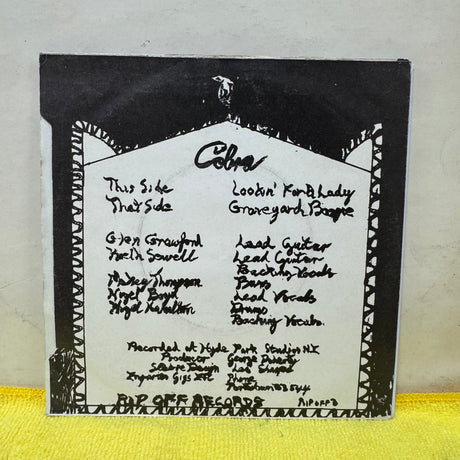 Cobra
This Side Lookin' For A Lady
That Side Graveyard Boogie
Glen Crawford Lead Guitar
Keith Sewell Lead Guitar
Backing Vocals
Mickey Thompson Bass
Nigel Boyd Lead Vocals
Nigel Hamilton Drums
Backing Vocals.
Recorded at Hyde Park Studios N.I.
Producer George
Sleeve Design Les
Enquiries Gigs Etc Phone
RIP OFF RECORDS RIPOFF 8